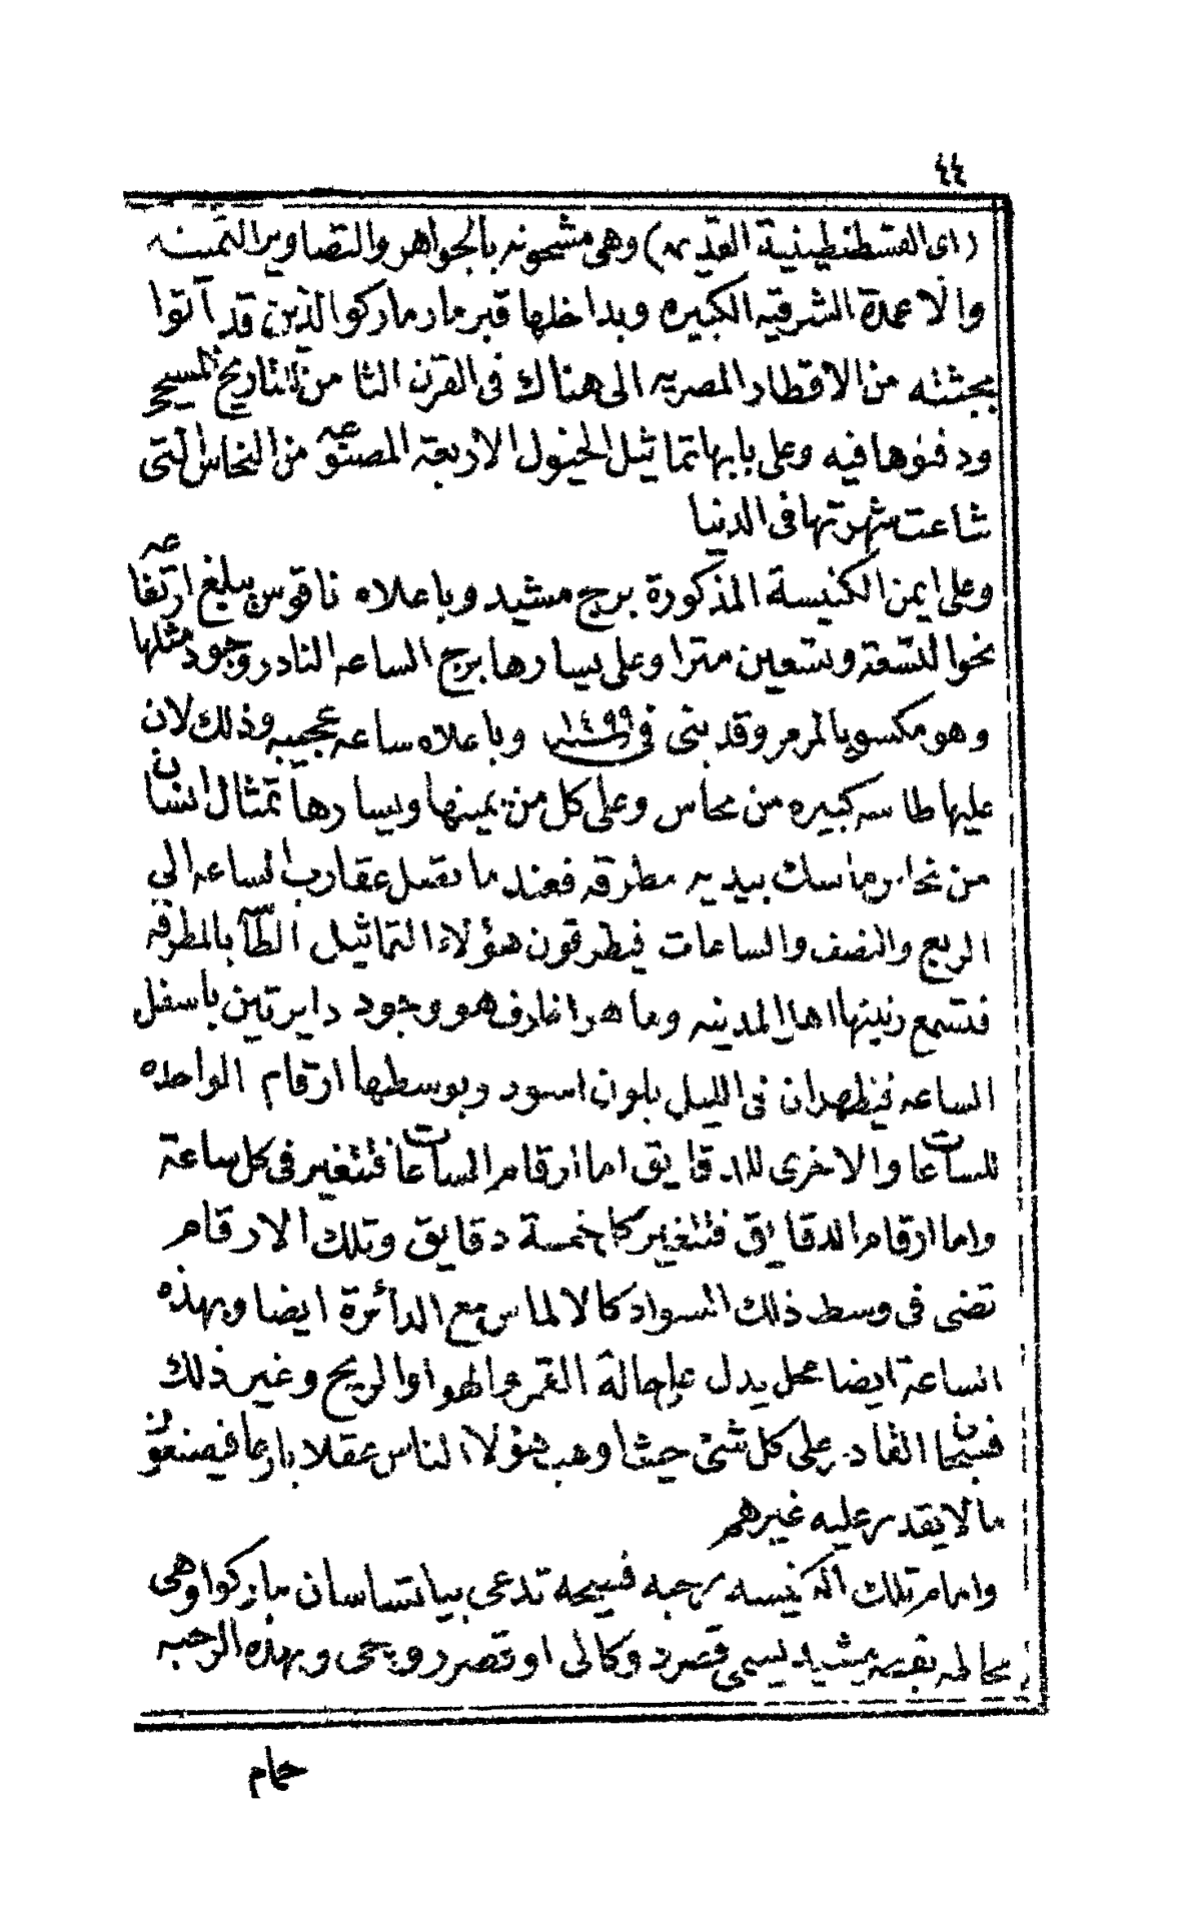 ٤٤
(اى القسطنطينية القديمه) وهى مشحونه بالجواهر والتصاوير الثمينه
والاعمدة الشرقيه الكبيره وبداخلها قبر مار ماركو الذين قد آتوا
بجثته من الاقطار المصريه الى هناك فى القرن الثامن للتاريخ المسيحى
ودفنوها فيه وعلى بابها تماثيل الخيول الاربعة المصنوعه من النحاس التى
شاعت شهرتها فى الدنيا
وعلى ايمن الكنيسة المذكورة برج مشيد وباعلاه ناقوس يبلغ ارتفاعه
نحو التسعة وتسعين مترا وعلى يسارها برج الساعه النادر وجود مثلها
وهو مكسو بالمرمر وقد بنى فى سنة ١٤٩٩ وباعلاه ساعه عجيبه وذلك لان
عليها طاسه كبيره من نحاس وعلى كل من يمينها ويسارها تمثال انسان
من نحاس ماسك بيديه مطرقه فعند ما تصل عقارب الساعه الى
الربع والنصف والساعات فيطرقون هؤلاء التماثيل الطآسه بالمطرقه
فتسمع رنينها اهل المدينه وما هو اغارف هو وجود دايرتين باسفل
الساعه فيظهران فى الليل بلون اسود وبوسطها ارقام الواحده
للساعات والاخرى للدقايق اما ارقام الساعات فتتغير فى كل ساعة
واما ارقام الدقايق فتتغير كل خمسة دقايق وتلك الارقام
تضى فى وسط ذلك السواد كالالماس مع الدأئرة ايضا وبهذه
الساعة ايضا محل يدل على حالة القمر والهوا والريح وغير ذلك
فسبحان القادر على كل شئ حيث اوهب هؤلا الناس عقلا بارعا فيصنعون
مالا يقدر عليه غيرهم
وامام تلك الكنيسه رحبه فسيحه تدعى بياتساسان ماركو وهى
محالمه بقصر مشيد يسمى قصر دوكالى او قصر رويحى وبهذه الرحبه
حمام